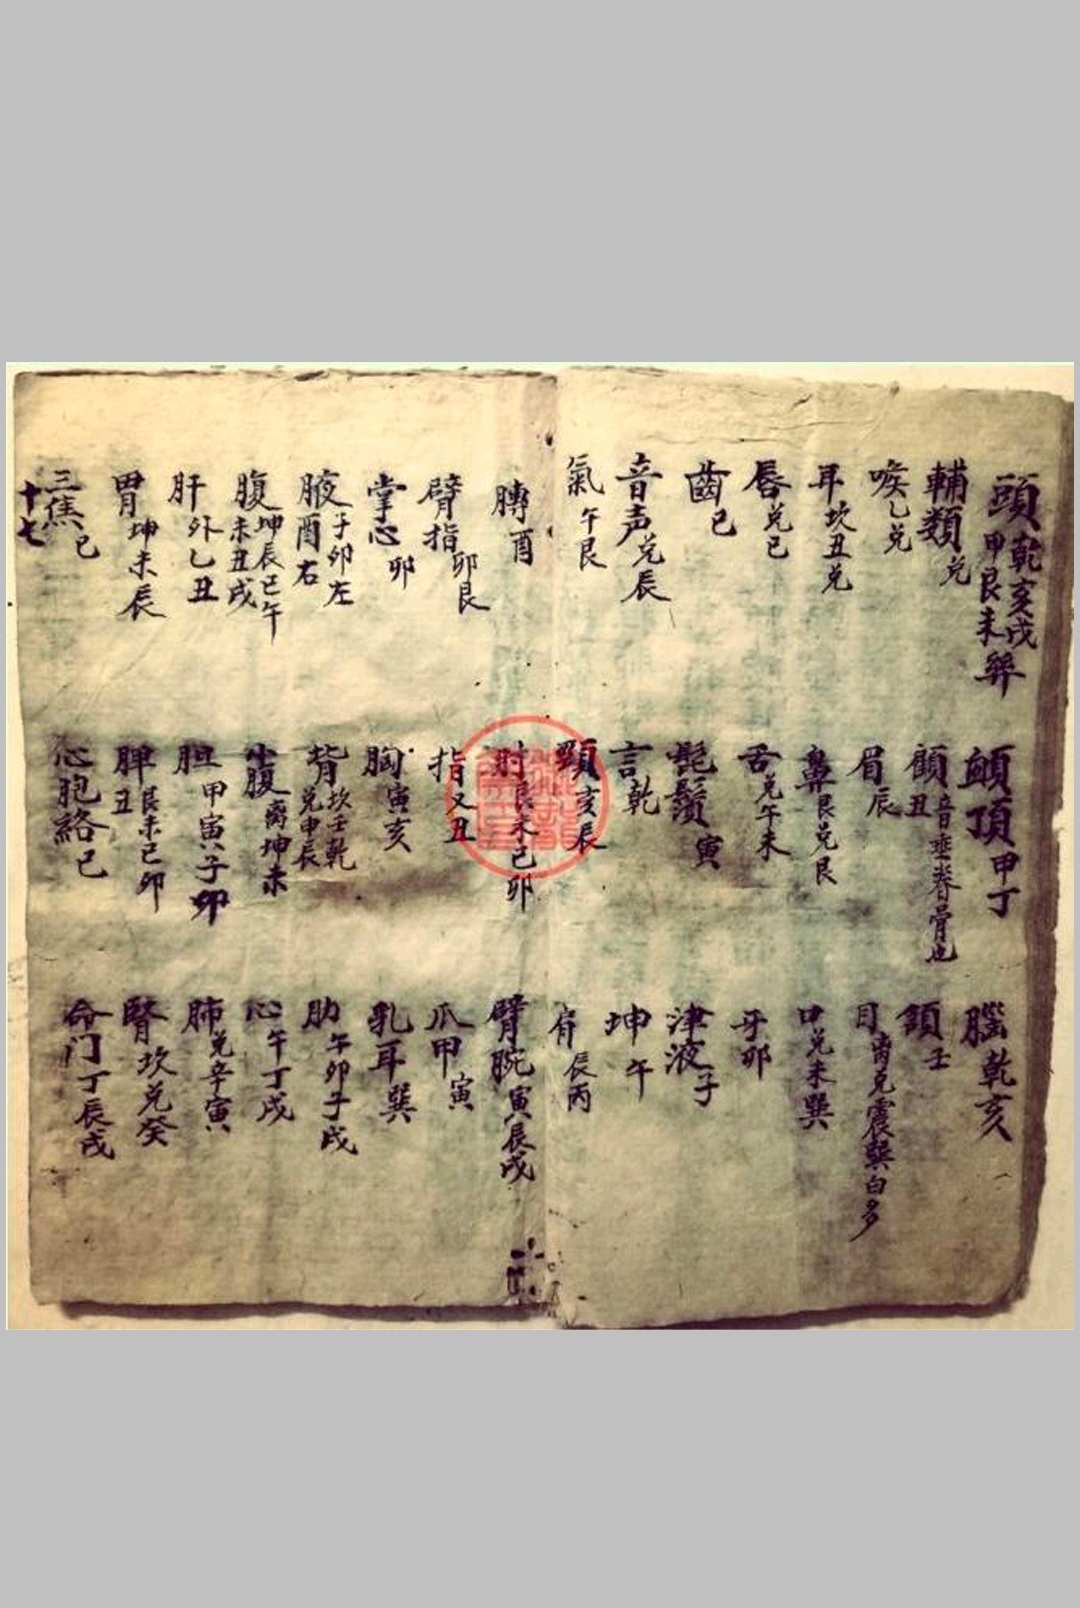 頭 乾亥戌 甲艮未巽
顱頂 甲丁
腦 乾亥
輔類 兑
顧 丑 音垂脊骨也
頷 壬
喉 乙兑
眉 辰
目 离兑震巽白多
耳 坎丑兑
鼻 艮兑艮
口 兑未巽
唇 兑巳
舌 兑午未
牙 卯
齒 巳
髭鬚 寅
津液 子
音声 兑辰
言 乾
坤 午
氣 午艮
頸 亥辰
肩 辰丙
膊 酉
肘 艮未巳卯
臂腕 寅辰戌
臂指 卯艮
指 又丑
爪甲 寅
掌心 卯
胸 寅亥
乳耳 巽
腋 子卯左 酉右
背 坎壬乾 兑申辰
肋 午卯子戌
腹 坤辰巳午 未丑戌
小腹 离坤未
心 午丁戌
肝 外乙丑
胆 甲寅子卯
肺 兑辛寅
胃 坤未辰
脾 艮未巳卯 丑
腎 坎兑癸
三焦 巳
心胞絡 巳
命门 丁辰戌
十七